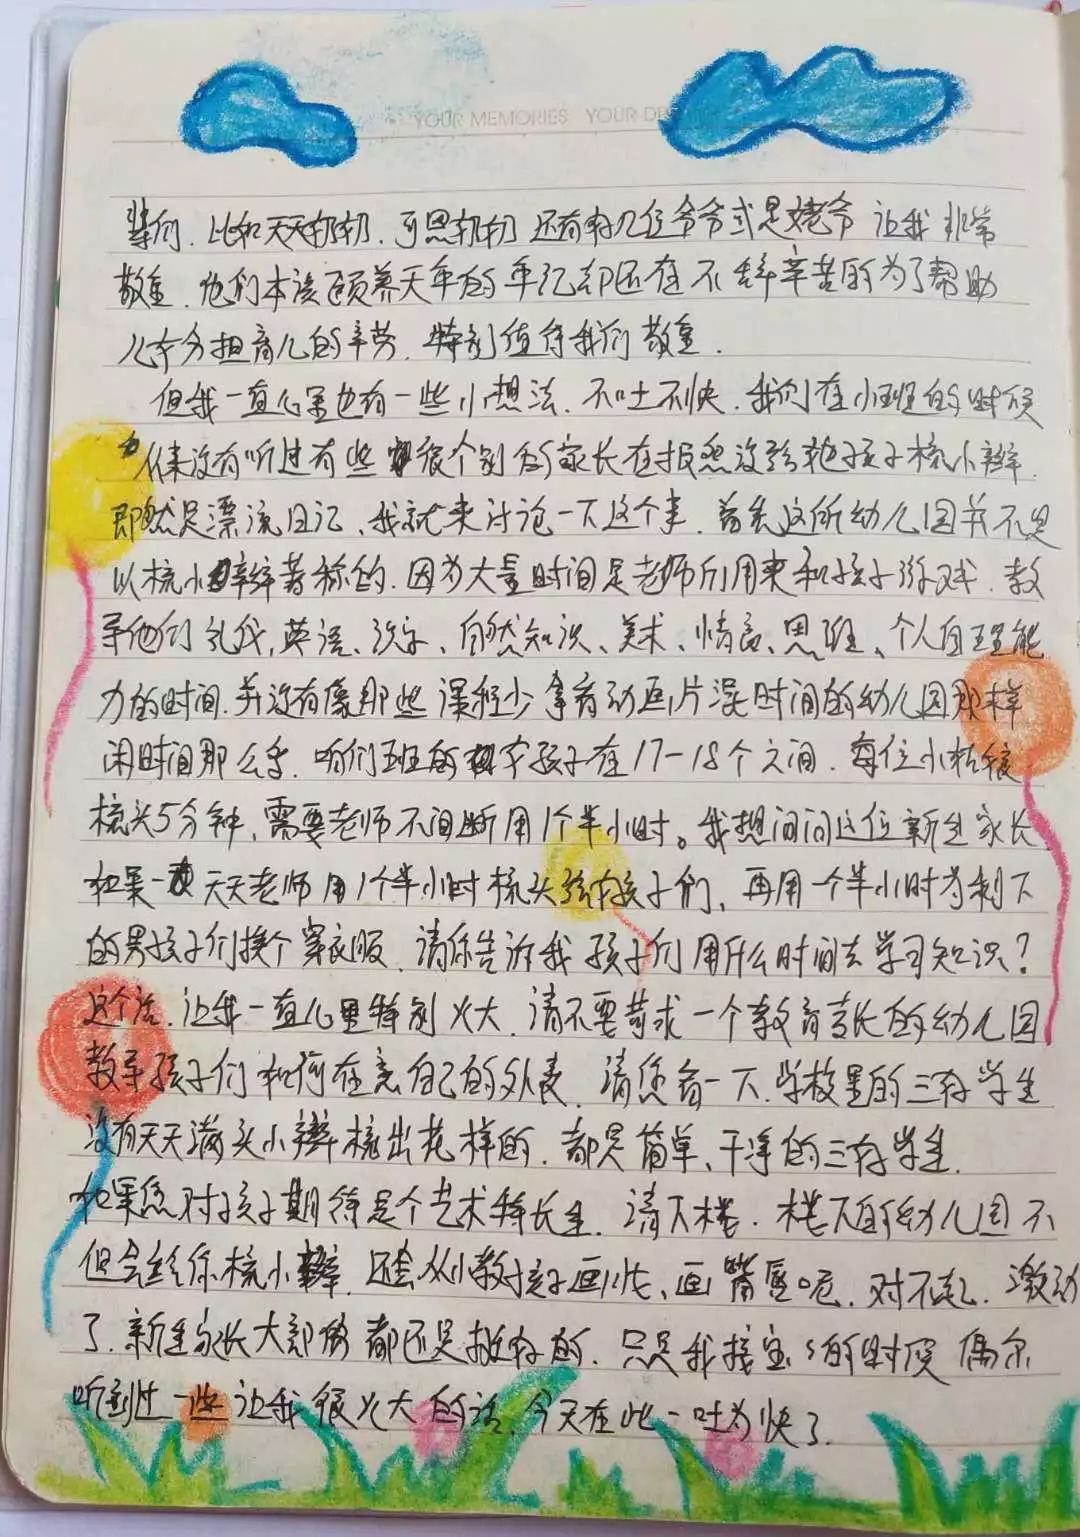 YOUR MEMORIES YOUR
辈们. 比如天天奶奶. 可恩奶奶 还有好几位爷爷或是姥爷 让我 非常
敬重. 他们本该颐养天年的年纪却还在不辞辛苦的为了帮助
儿女分担育儿的辛劳. 特别值得我们敬重.
但我一直心里也有一些小想法. 不吐不快. 我们在小班的时候
从来没有听过有些很个别的家长在报怨没给她孩子梳小辫.
即然是漂流日记、我就来讨论一下这个事. 首先这所幼儿园并不是
以梳小辫著称的. 因为大量时间是老师们用来和孩子游戏. 教
导他们礼仪, 英语、识字、自然知识、美术、情商、思维、个人自理能
力的时间. 并没有像那些课程少拿着动画片混时间的幼儿园那样
闲时间那么多. 咱们班的女孩子在17-18个之间. 每位小粘
梳头5分钟, 需要老师不间断用1个半小时。我想问问这位新生家长
如果天天老师用1个半小时梳头给女孩子们, 再用一个半小时为剩下
的男孩子们换个穿衣服. 请你告诉我 孩子们用什么时间去学习知识?
这个话. 让我一直心里特别火大. 请不要苛求一个教育专长的幼儿园
教导孩子们如何在意自己的外表. 请您看一下. 学校里的三好学生
没有天天满头小辫梳出花样的. 都是简单、干净的三好学生.
如果您对孩子期待是个艺术特长生. 请下楼. 楼下的幼儿园不
但会给你梳小辫. 还会从小教孩子画、画嘴唇呢. 对不起. 激动
了. 新生家长大部份都还是挺好的. 只是我接宝宝的时候 偶尔
听到过一些让我很火大的话. 今天在此一吐为快了.